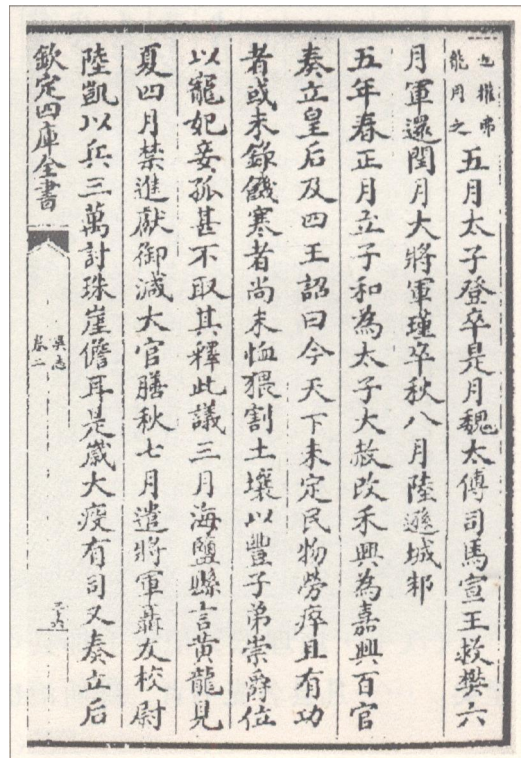 也權弗
能用之
五月太子登卒是月魏太傅司馬宣王救樊六
月軍還閏月大將軍瑾卒秋八月陸遜城邾
五年春正月立子和為太子大赦改禾興為嘉興百官
奏立皇后及四王詔曰今天下未定民物勞瘁且有功
者或未錄饑寒者尚未恤猥割土壤以豐子弟崇爵位
以寵妃妾孤甚不取其釋此議三月海鹽縣言黃龍見
夏四月禁進獻御減大官膳秋七月遣將軍聶友校尉
陸凱以兵三萬討珠崖儋耳是嵗大疫有司又奏立后
欽定四庫全書
吳志
卷二